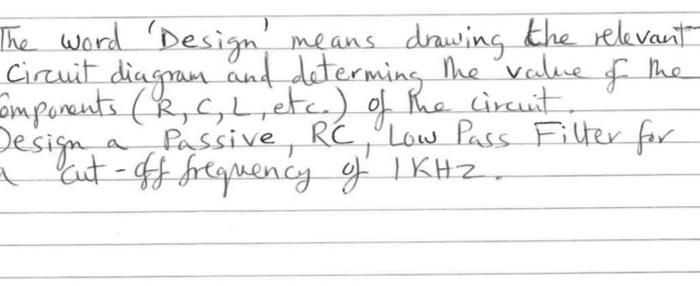 The word 'Design' means drawing the relevant
circuit diagram and determing the value of the
omponents (R, C, L, etc.) of the circuit.
Design a Passive, RC, Low Pass Filter for
a cut-off frequency of 1KHZ.